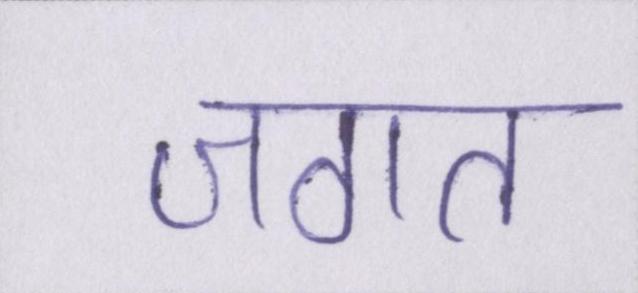 जगत